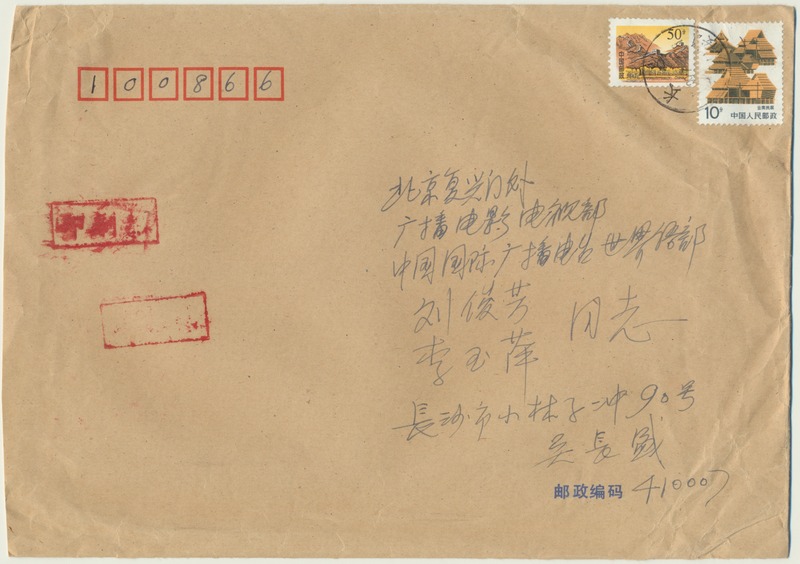 100866
50分
10分
中国人民邮政
北京复兴门外
广播电影电视部
中国国际广播电台世界语部
刘俊芳 同志
李玉萍
長沙市小林子冲90号
吴長盛
邮政编码 410007